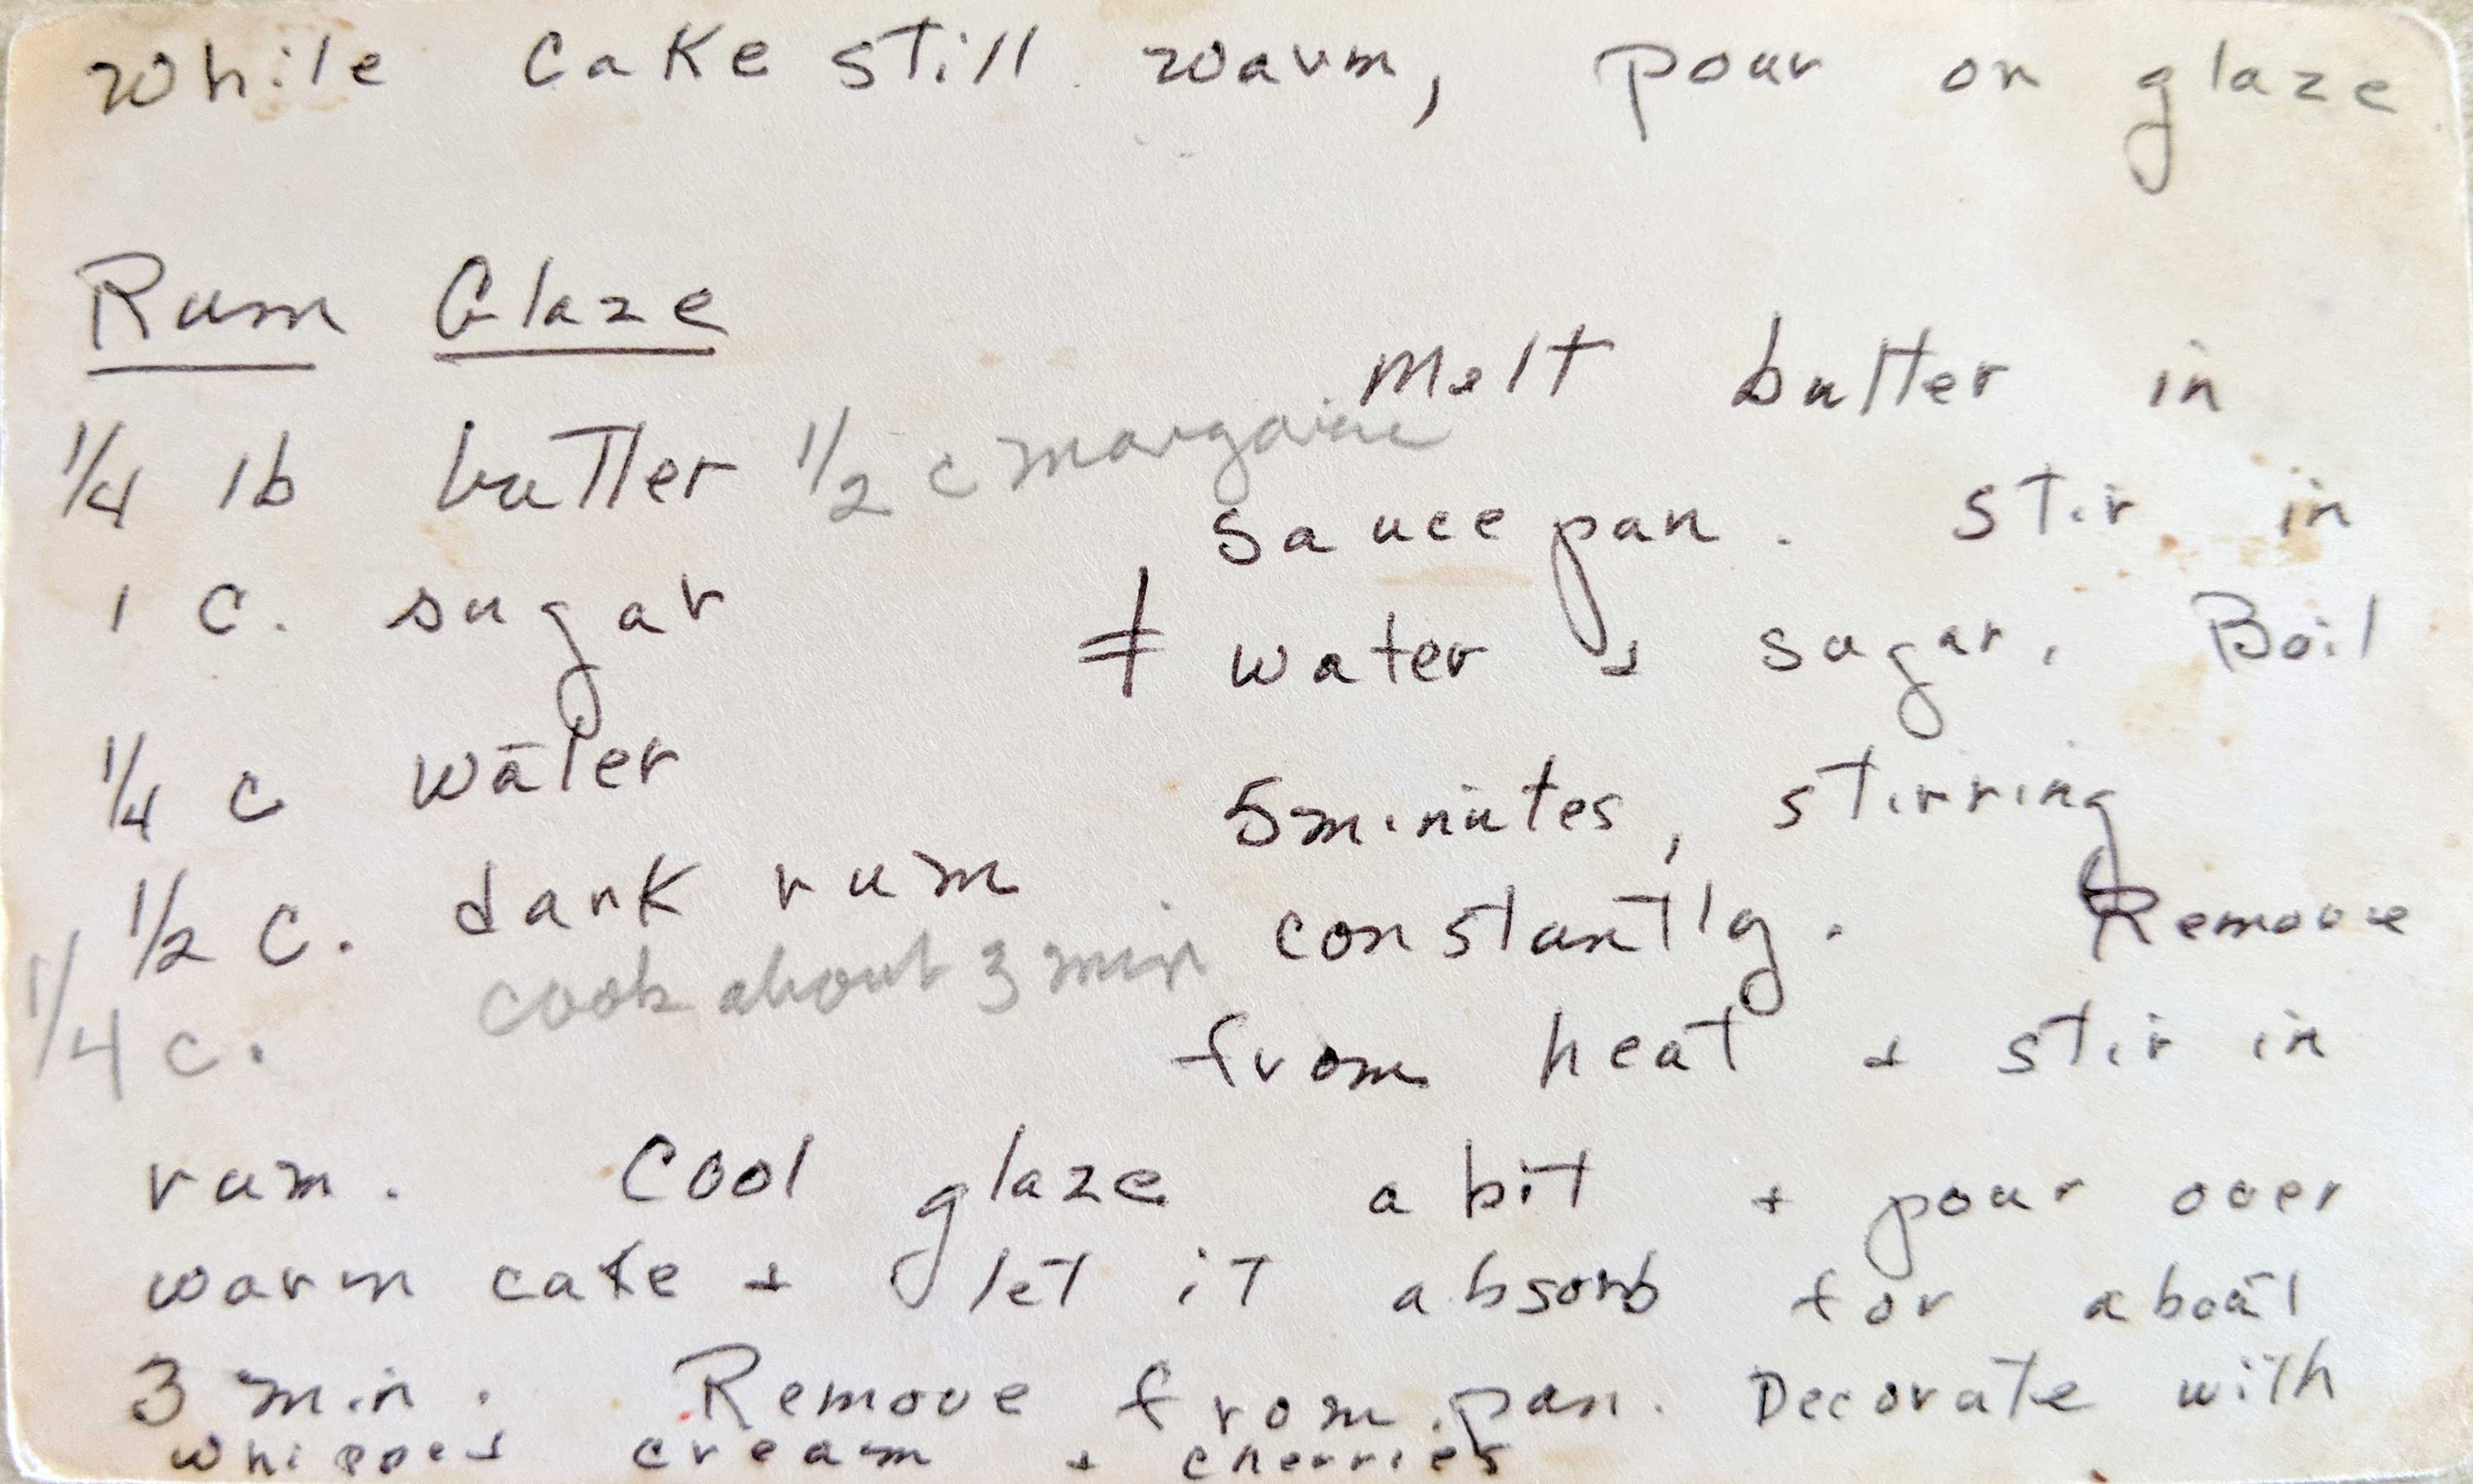 While cake still warm, pour on glaze
Rum Glaze
1/4 lb butter 1/2 c margarine
1 c. sugar
1/4 c water
1/2 c. dark rum
1/4 c. cook about 3 min
Melt butter in
sauce pan. stir in
‡ water + sugar. Boil
5 minutes, stirring
constantly. Remove
from heat + stir in
rum. Cool glaze a bit + pour over
warm cake + let it absorb for about
3 min. Remove from pan. Decorate with
whipped cream + cherries